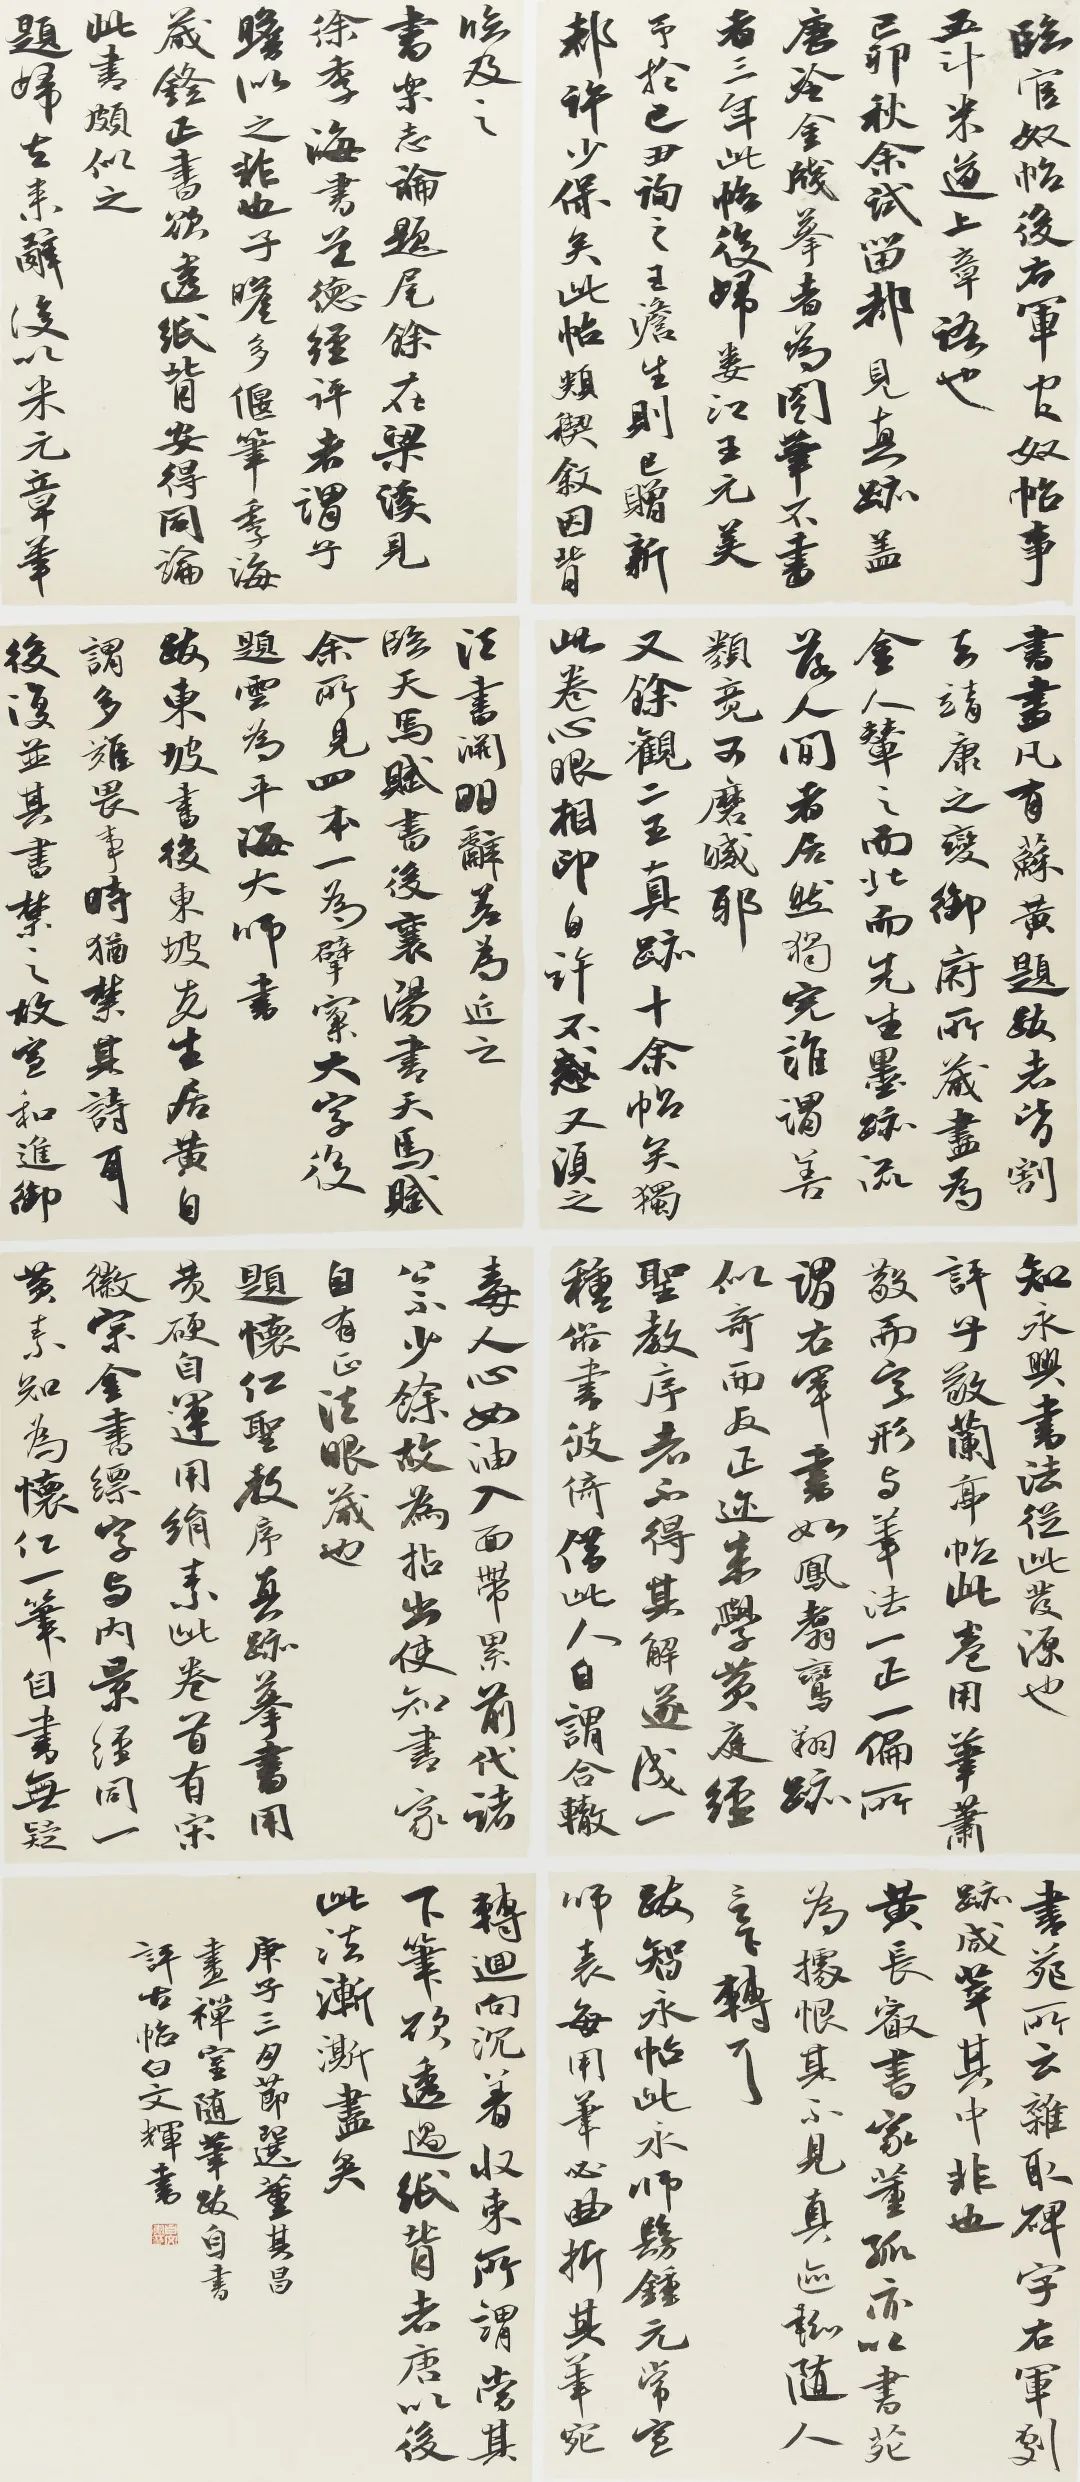 臨官奴帖後右軍官奴帖事
五斗米道上章語也
己卯秋余試留都見真跡蓋
唐冷金牋摹者為閣筆不書
者三年此帖後歸婁江王元美
予於己丑詢之王澹生則已贈新
都許少保矣此帖類禊敘因背
臨及之
書樂志論題尾餘在梁溪見
徐季海書道德經評者謂子
瞻似之非也子瞻多偃筆季海
藏鋒正書欲透紙背安得同論
此書頗似之
題歸去來辭後以米元章筆
書畫凡有蘇黃題跋者皆割
去靖康之變御府所藏盡為
金人輦之而北而先生墨跡流
落人間者居然獨完誰謂善
類竟可磨滅耶
又餘觀二王真跡十余帖矣獨
此卷心眼相印自許不惑又須之
法書淵明辭差為近之
臨天馬賦書後襄陽書天馬賦
余所見四本一為擘窠大字後
題雲為平海大師書
跋東坡書後東坡先生居黃自
謂多難畏事時猶禁其詩耳
後復並其書禁之故宣和進御
知永興書法從此發源也
評子敬蘭亭帖此卷用筆蕭
散而字形與筆法一正一偏所
謂右軍書如鳳翥鸞翔跡
似奇而反正邇來學黃庭經
聖教序者不得其解遂成一
種俗書彼倚借此人自謂合轍
毒人心如油入面帶累前代諸
公不少餘故為拈出使知書家
自有正法眼藏也
題懷仁聖教序真跡摹書用
黃硬自運用絹素此卷首有宋
徽宗金書縹字與內景經同一
黃素知為懷仁一筆自書無疑
書苑所云雜取碑字右軍劇
跡咸萃其中非也
黃長睿書家董狐亦以書苑
為據恨其不見真跡輒隨人
言下轉耳
跋智永帖此永師學鍾元常宣
師表每用筆必曲折其筆宛
轉迴向沉着收束所謂當其
下筆欲透過紙背者唐以後
此法漸漸盡矣
庚子三月節選董其昌
畫禪室隨筆跋自書
評古帖白文輝書